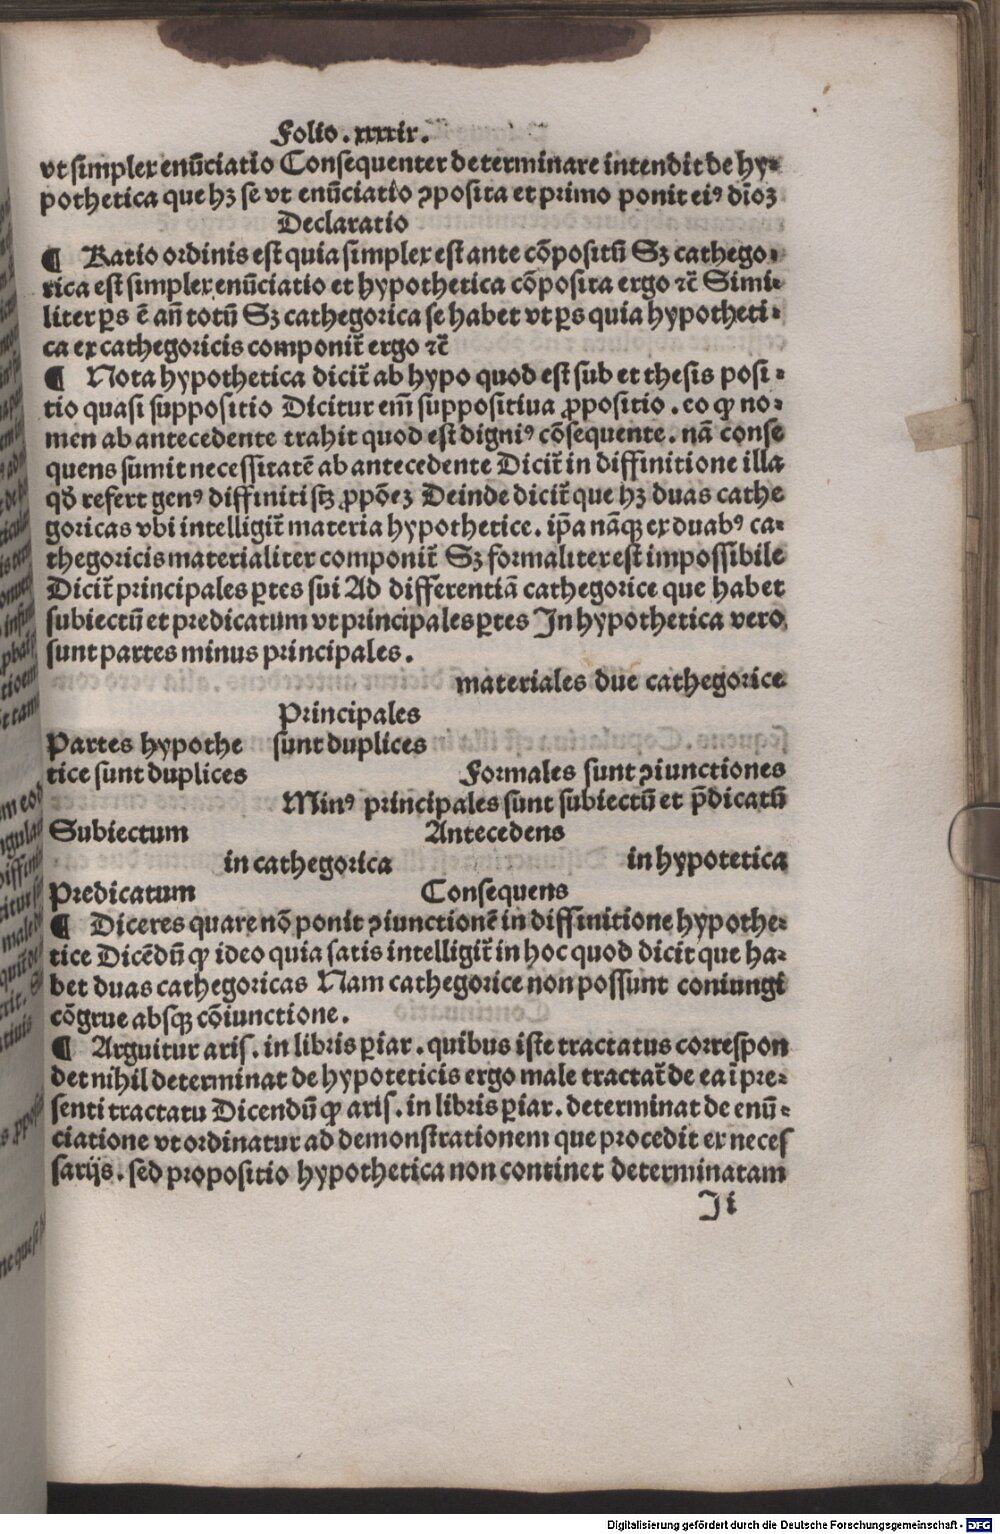 Folio .xxxxix.
vt simplex enūciatio Consequenter determinare intendit de hy-
pothetica que hꝫ se vt enūciatio ꝯposita et primo ponit eiꝰ diōꝫ
Declaratio
¶ Ratio ordinis est quia simplex est ante cōpositū Sꝫ cathego-
rica est simplex enūciatio et hypothetica cōposita ergo ⁊c̄ Simi-
liter ꝑs ē an̄ totū Sꝫ cathegorica se habet vt ꝑs quia hypotheti-
ca ex cathegoricis componit̄ ergo ⁊c̄
¶ Nota hypothetica dicit̄ ab hypo quod est sub et thesis posi-
tio quasi suppositio Dicitur em̄ suppositiua ꝓpositio . eo ꝙ no-
men ab antecedente trahit quod est digniꝰ cōsequente . nā conse
quens sumit necessitatē ab antecedente Dicit̄ in diffinitione illa
qð refert genꝰ diffiniti sꝫ ꝓpōeꝫ Deinde dicit̄ que hꝫ duas cathe
goricas vbi intelligit̄ materia hypothetice . ip̄a nāqꝫ ex duabꝰ ca-
thegoricis materialiter componit̄ Sꝫ formaliter est impossibile
Dicit̄ principales ꝑtes sui Ad differentiā cathegorice que habet
subiectū et predicatum vt principales ꝑtes In hypothetica vero
sunt partes minus principales .
materiales due cathegorice
Principales
Partes hypothe sunt duplices
tice sunt duplices Formales sunt ꝯiunctiones
Minꝰ principales sunt subiectū et p̄dicatū
Subiectum Antecedens
in cathegorica in hypotetica
Predicatum Consequens
¶ Diceres quare nō ponit ꝯiunctionē in diffinitione hypothe-
tice Dicēdū ꝙ ideo quia satis intelligit̄ in hoc quod dicit que ha-
bet duas cathegoricas Nam cathegorice non possunt coniungi
cōgrue absqꝫ cōiunctione .
¶ Arguitur aris . in libris ꝑiar . quibus iste tractatus correspon
det nihil determinat de hypoteticis ergo male tractat̄ de ea ī pre-
senti tractatu Dicendū ꝙ aris . in libris ꝑiar . determinat de enū-
ciatione vt ordinatur ad demonstrationem que procedit ex necess
sarijs . sed propositio hypothetica non continet determinatam
Ii
Digitalisierung gefördert durch die Deutsche Forschungsgemeinschaft - DFG